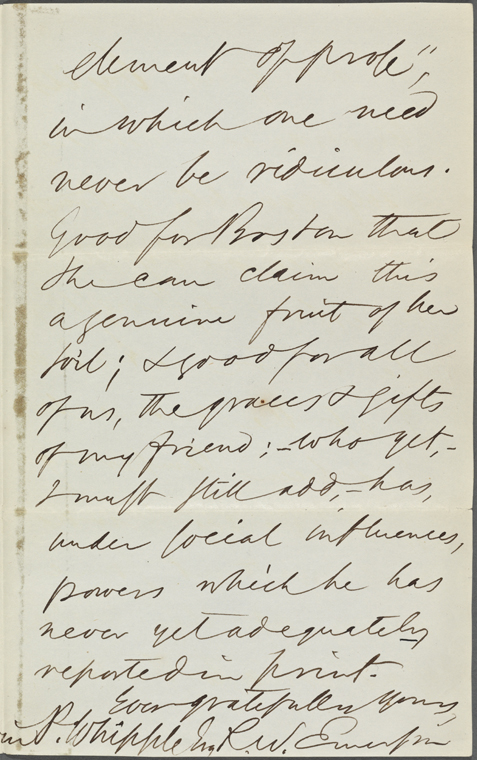 element of prose",
in which one need
never be ridiculous.
Good for Boston that
she can claim this
a genuine fruit of her
soil; & good for all
of us, the graces & gifts
of my friend; – who yet, –
I must still add, – has,
under social influences,
powers which he has
never yet adequately
reported in print.
Ever gratefully yours,
R. W. Emerson
P. Whipple Esq.